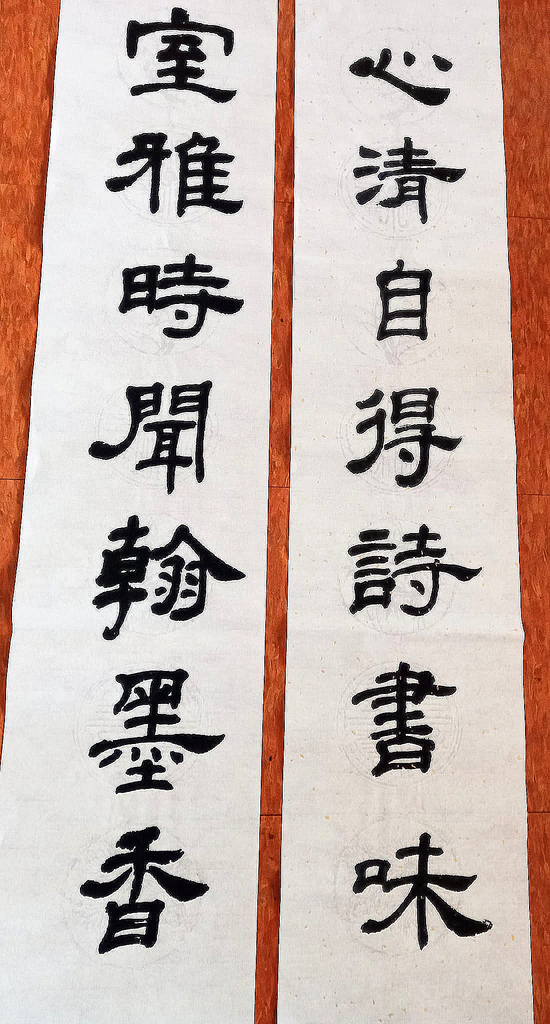 心清自得詩書味
室雅時聞翰墨香